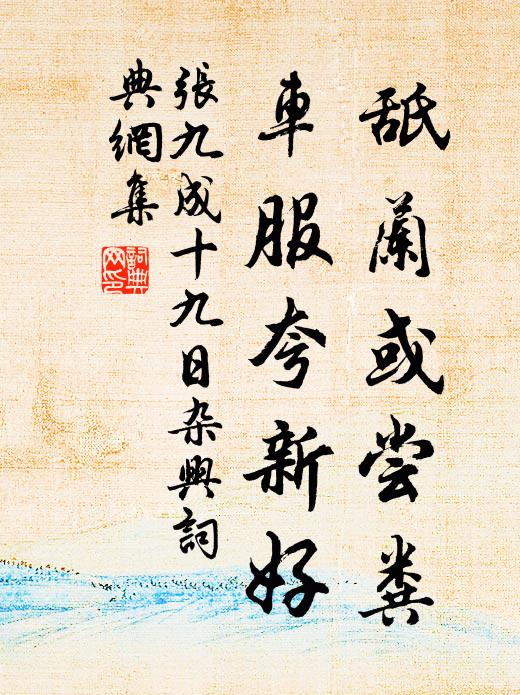 舐蘭或尝糞
車服夸新好
張九成十九日杂興詞
典網集
詞典
网印